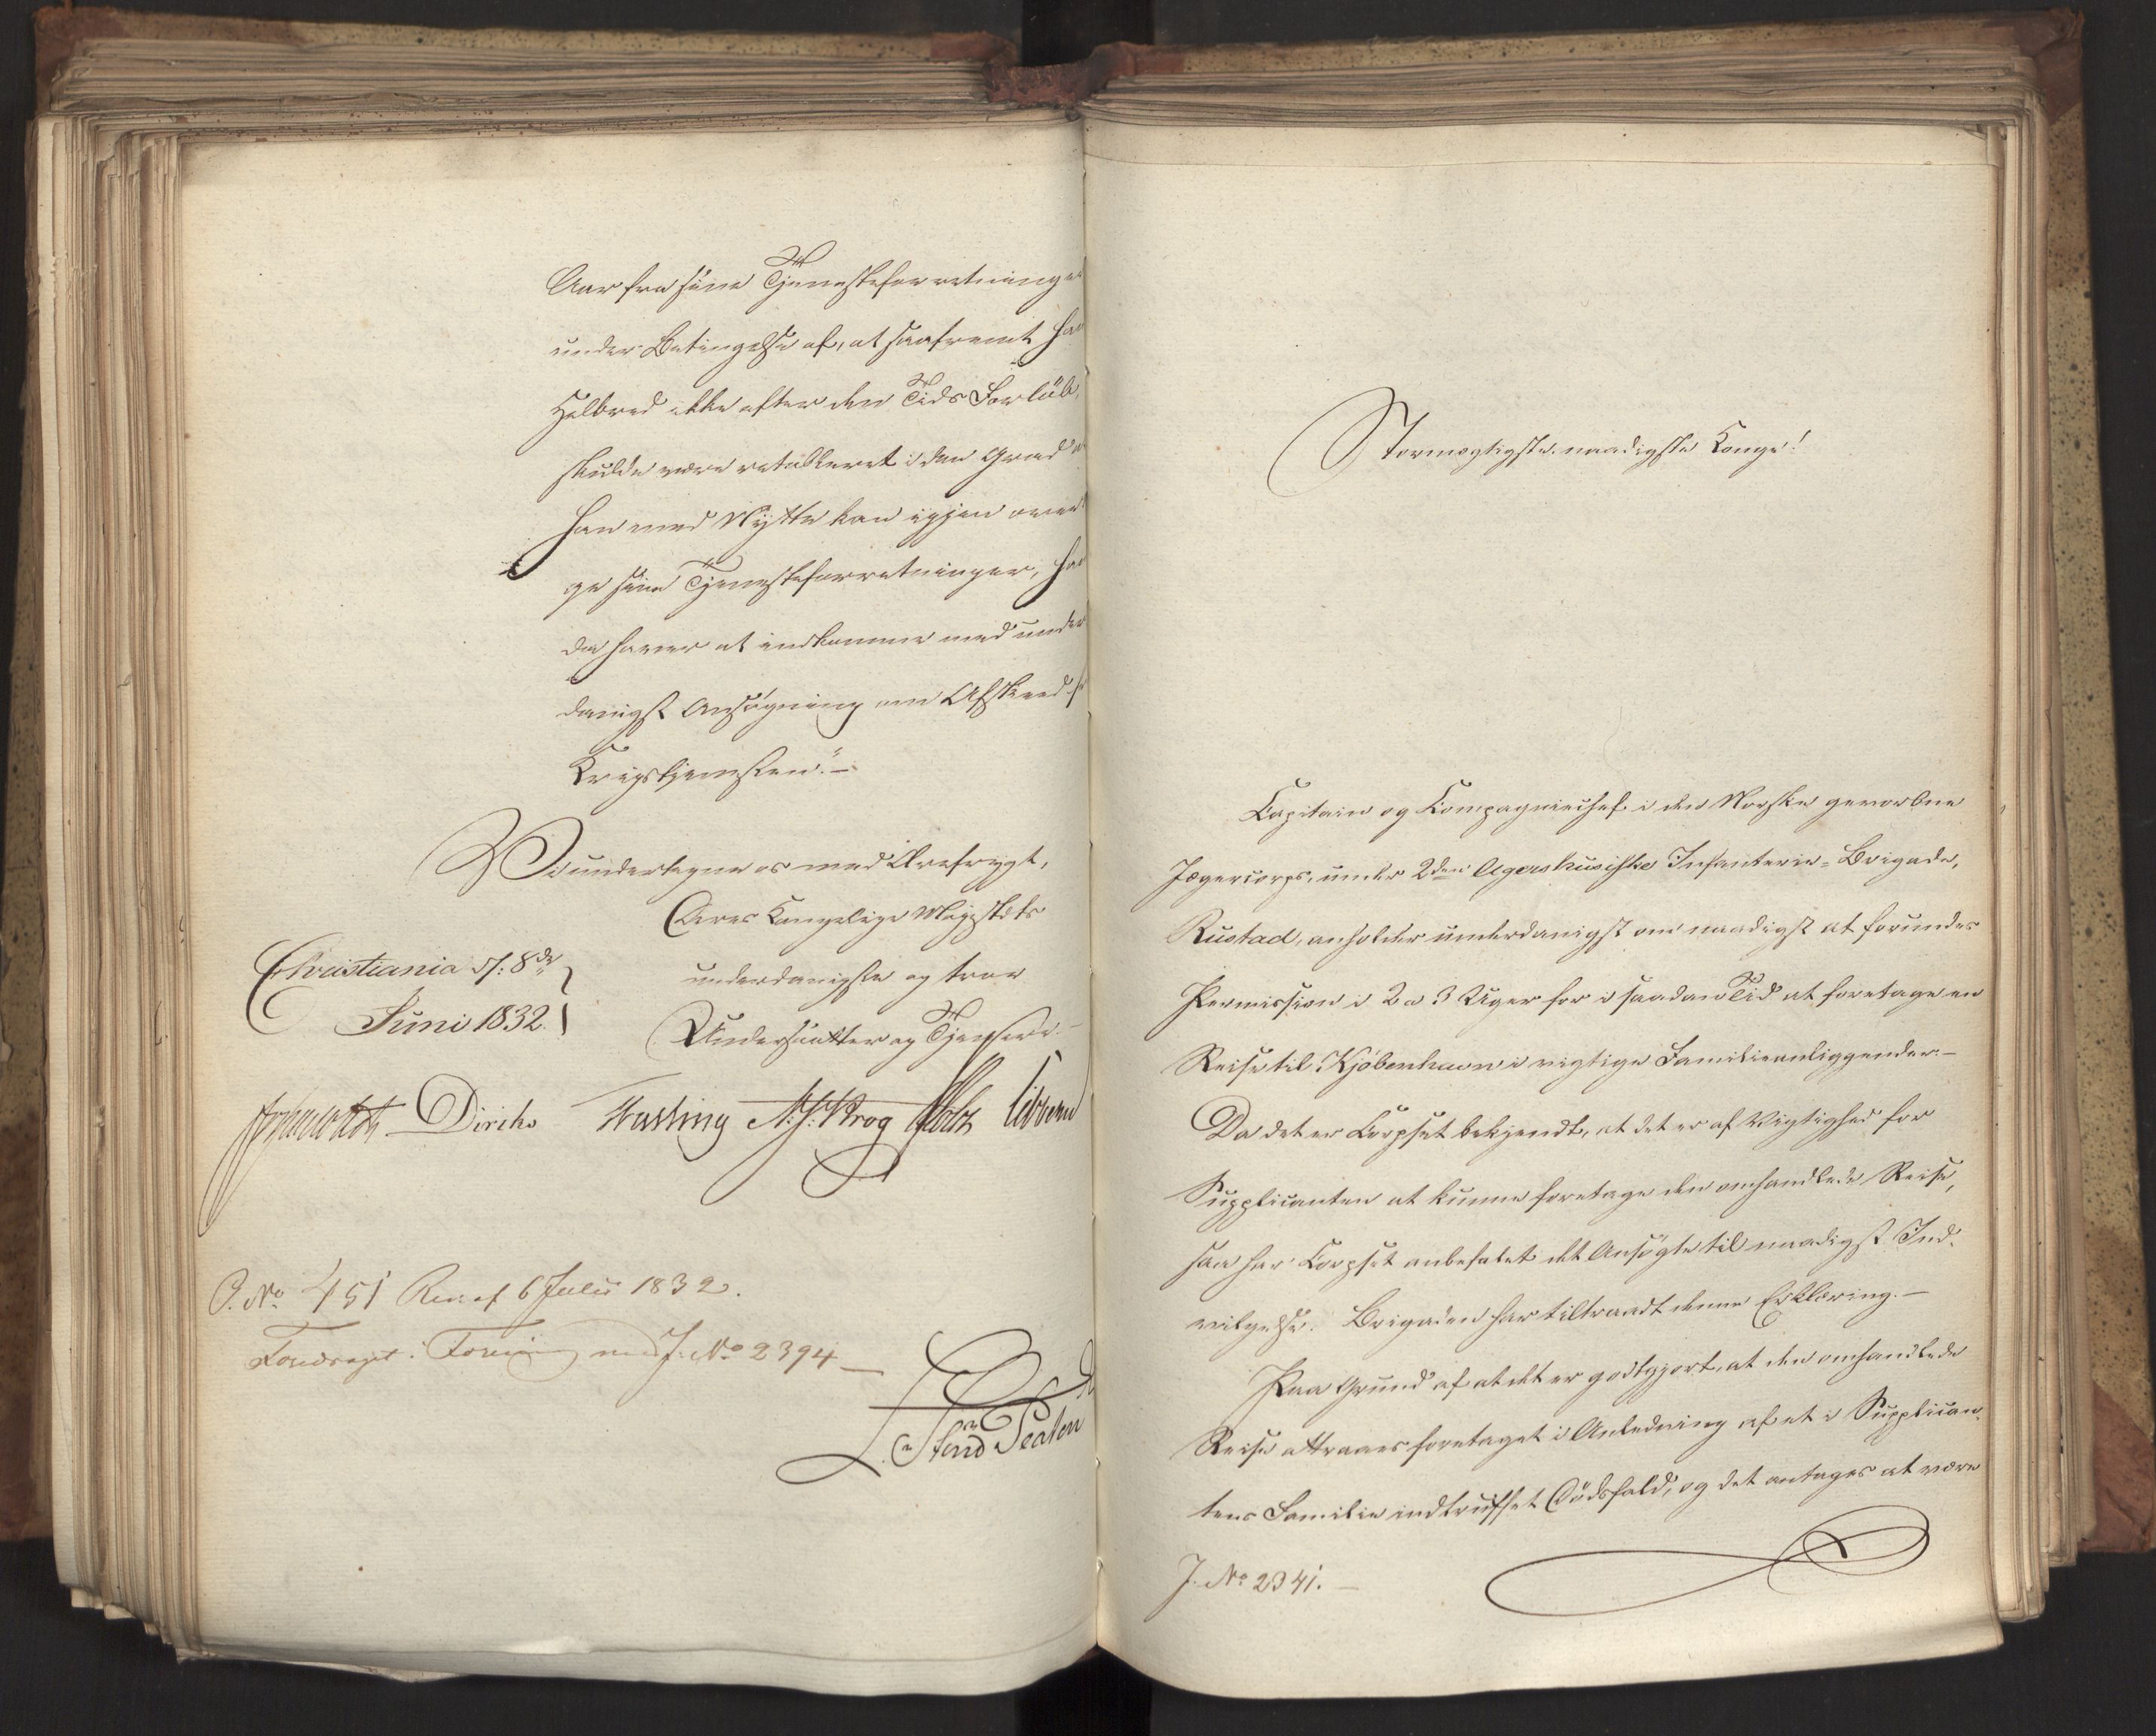 Aar fra sine Tjenesteforretninger
under Betingelse af, at saafremt hans
Helbred ikke efter den Tids Forløb,
skulde være retableret i den Grad at
han med Nytte kan igjen over
ge sine Tjenesteforretninger, han
da haver at indkomme med under
danigst Ansøgning om Afskeed fra
Krigstjenesten."—
Vi undertegne os med Ærefrygt,
Eders Kongelige Majestets
underdanigste og troe
Undersaatter og Tjenere.
Christiania d: 8de
Juni 1832.
Diriks Fasting N. J. Krog Holst Vibe
O. No 451 Res af 6 Julii 1832.
Foredraget i Forening med J. No 2394 —
Stormægtigste, naadigste Konge!
Capitain og Kompagniechef i den Norske gevorbne
Jægercorps, under 2den Agershusiske Infanterie-Brigade,
Rustad, anholder underdanigst om naadigst at forundes
Permission i 2 a 3 Uger for i saadan Tid at foretage en
Reise til Kjøbenhavn i vigtige Familieanliggender.—
Da det er Corpset bekjendt, at det er af Vigtighed for
Supplicanten at kunne foretage den omhandlede Reise,
saa har Corpset anbefalet det Ansøgte til naadigst Ind-
vilgelse. Brigaden har tiltraadt denne Erklæring.—
Paa Grund af at det er godtgjort, at den omhandlede
Reise attraaes foretaget i Anledning af et i Supplican-
tens Familie indtruffet Dødsfald, og det antages at være
J. No 2341.—